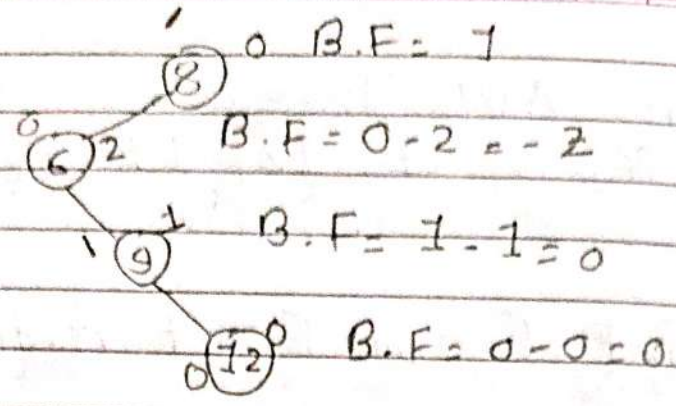 ' 8 0 B.F = 1
0 6 2 B.F = 0 - 2 = - 2
1 9 1 B.F = 1 - 1 = 0
0 12 0 B.F = 0 - 0 = 0